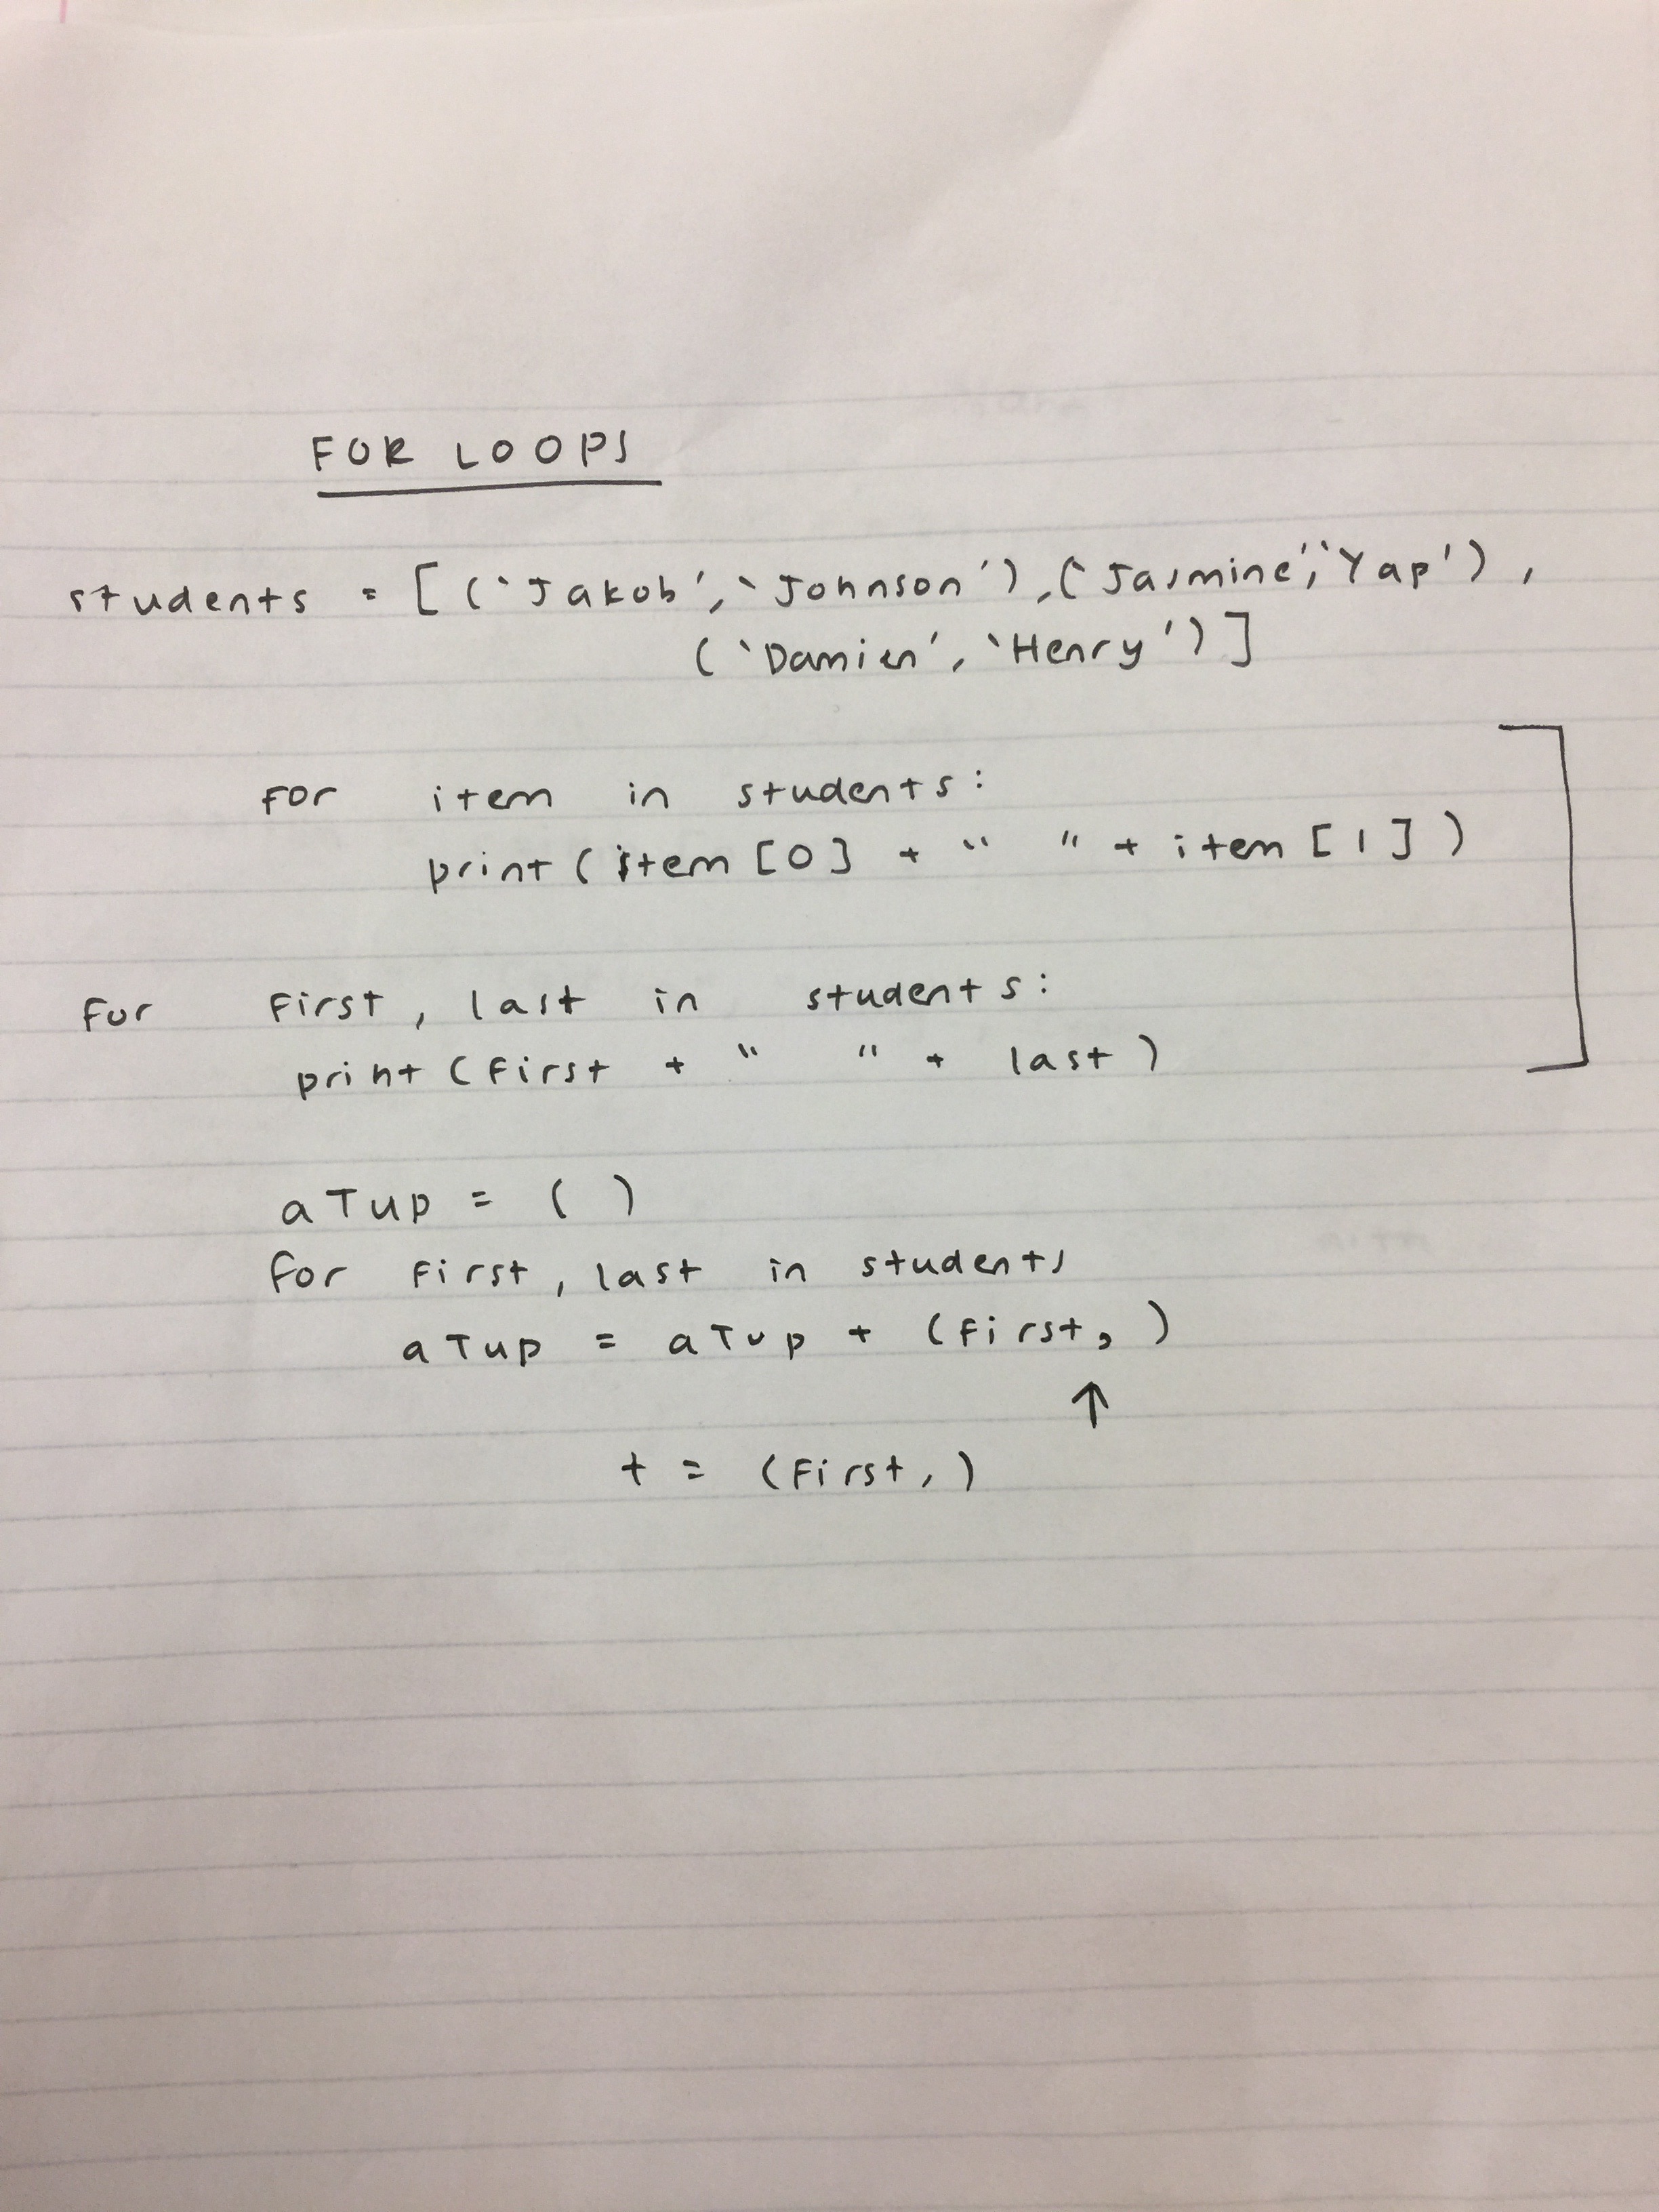 FOR LOOPS
students = [('Jakob', 'Johnson'), ('Jasmine', 'Yap'),
('Damien', 'Henry')]
for item in students:
print(item[0] + " " + item[1])
for first, last in students:
print(first + " " + last)
aTup = ( )
for first, last in students
aTup = aTup + (first, )
↑
t = (first, )